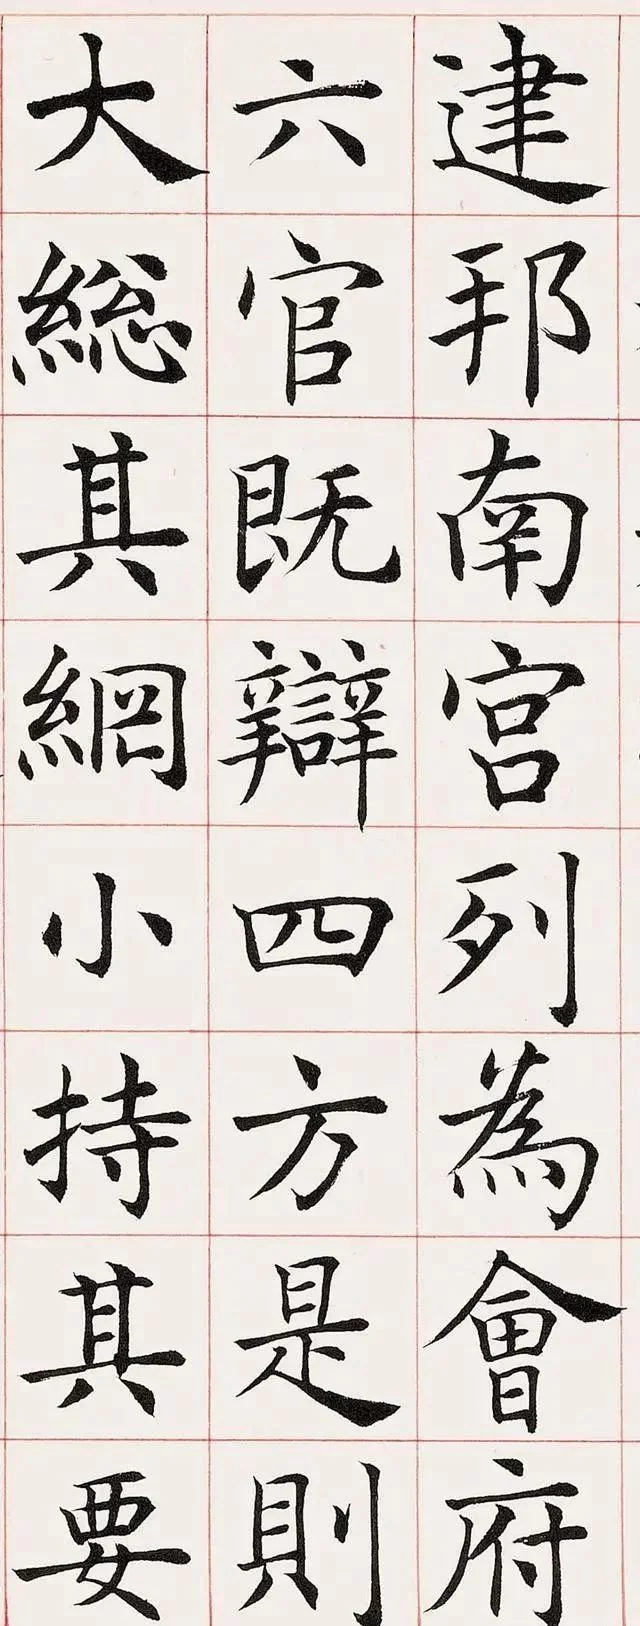 建邦南宫列為會府
六官既辯四方是則
大総其網小持其要